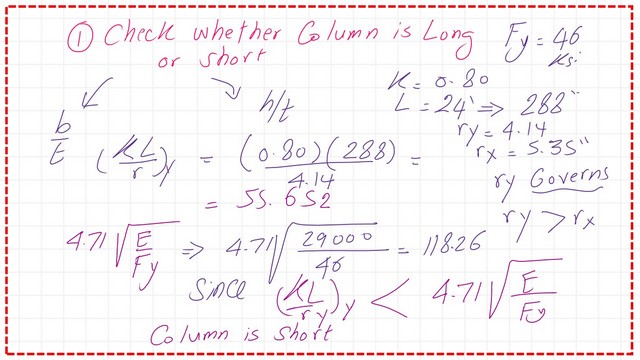 ① Check whether Column is Long
or short
Fy = 46
Ksi
K = 0.80
L = 24' ⇒ 288"
ry = 4.14
rx = 5.35"
ry Governs
ry > rx
b/t
h/t
(KL/r)y = (0.80)(288)/4.14 =
= 55.652
4.71√(E/Fy) ⇒ 4.71√(29000/46) = 118.26
Since (KL/ry)y < 4.71√(E/Fy)
Column is short